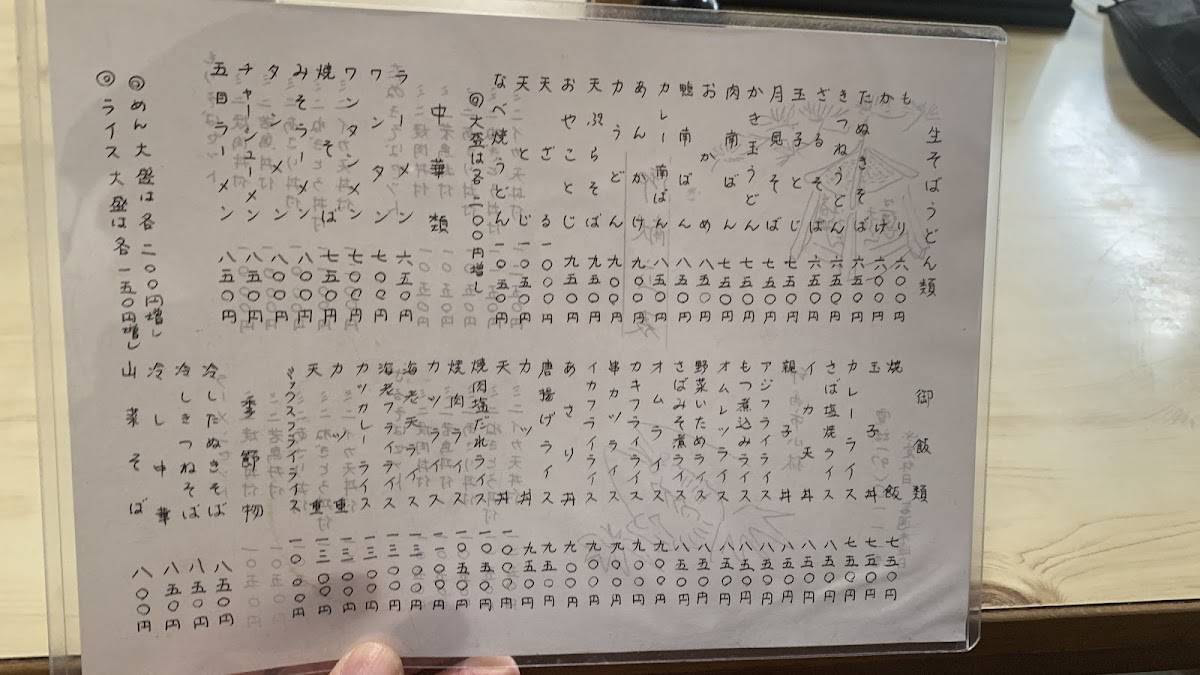 生そばうどん類
もり 六〇〇円
かけ 六〇〇円
たぬきそば 六五〇円
きつねうどん 六五〇円
ざるそば 六五〇円
玉子とじ 七五〇円
月見そば 七五〇円
かき玉うどん 七五〇円
肉南ばん 七五〇円
おかめ 八五〇円
鴨南ばん 八五〇円
カレー南ばん 八五〇円
あんかけ 九〇〇円
力うどん 九〇〇円
天ぷらそば 九五〇円
おやことじ 九五〇円
天ざる 一〇〇〇円
天とじ 一〇五〇円
なべ焼うどん 一〇五〇円
◎大盛は各二〇〇円増し
中華類
ラーメン 六五〇円
ワンタン 七〇〇円
ワンタンメン 七〇〇円
焼そば 七五〇円
みそラーメン 八〇〇円
タンメン 八〇〇円
チャーシューメン 八五〇円
五目ラーメン 八五〇円
◎めん大盛は各二〇〇円増し
◎ライス大盛は各一五〇円増し
御飯類
焼飯 七五〇円
玉子丼 七五〇円
カレーライス 七五〇円
さば塩焼ライス 八五〇円
イカ天丼 八五〇円
親子丼 八五〇円
アジフライライス 八五〇円
もつ煮込みライス 八五〇円
オムレツライス 八五〇円
野菜いためライス 八五〇円
さばみそ煮ライス 八五〇円
オムライス 九〇〇円
カキフライライス 九〇〇円
串カツライス 九〇〇円
イカフライライス 九〇〇円
あさり丼 九〇〇円
唐揚げライス 九五〇円
カツ丼 九五〇円
天丼 一〇〇〇円
焼肉塩だれライス 一〇五〇円
焼肉ライス 一〇五〇円
カツライス 一一〇〇円
海老天ライス 一三〇〇円
海老フライライス 一三〇〇円
カツカレーライス 一三〇〇円
カツ重 一三〇〇円
天重 一三〇〇円
ミックスフライライス
季節物
冷したぬきそば 八五〇円
冷しきつねそば 八五〇円
冷し中華 八五〇円
山菜そば 八〇〇円